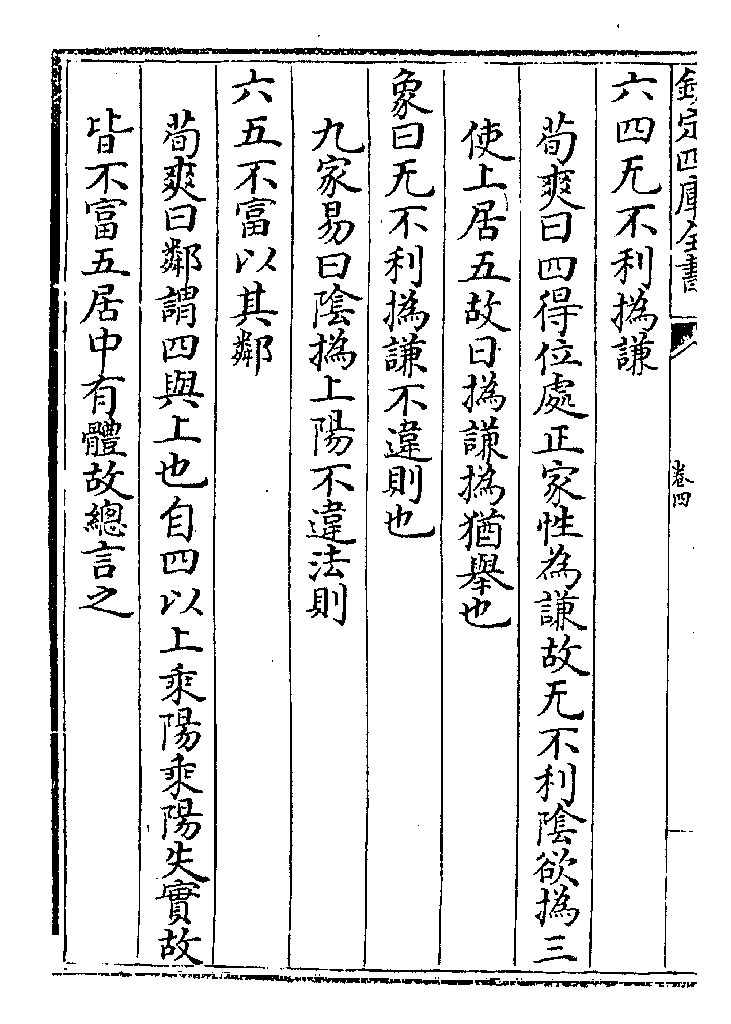 欽定四庫全書
卷四
六四无不利撝謙
荀爽曰四得位處正家性為謙故无不利陰欲撝三
使上居五故曰撝謙撝猶舉也
象曰无不利撝謙不違則也
九家易曰陰撝上陽不違法則
六五不富以其鄰
荀爽曰鄰謂四與上也自四以上乘陽乘陽失實故
皆不富五居中有體故總言之